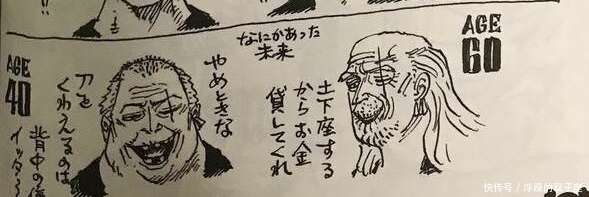 なにかあった
未来
AGE
60
土下座する
からお金
貸してくれ
AGE
40
やめときな
刀を
くわえるのは
背中の傷
快传号/